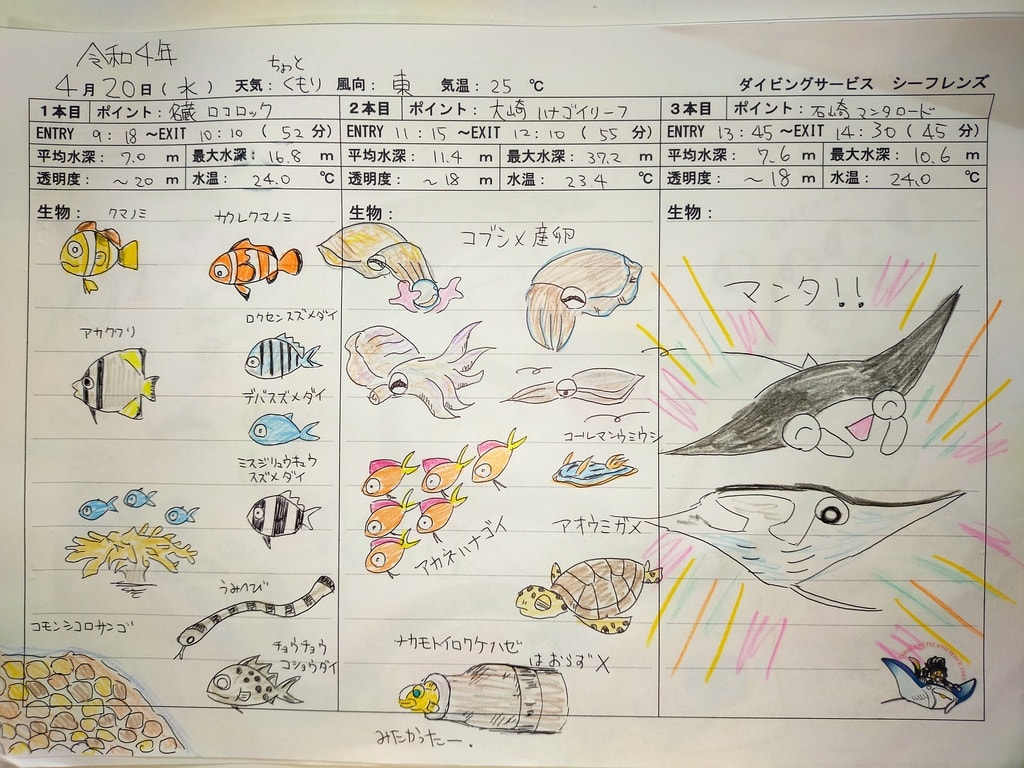 令和4年
4月20日(水) 天気:ちょとくもり 風向:東 気温:25 ℃ ダイビングサービス シーフレンズ
1本目 ポイント:名蔵 ロコロック
ENTRY 9:18 ~EXIT 10:10 ( 52 分)
平均水深: 7.0 m 最大水深: 16.8 m
透明度: ~20 m 水温: 24.0 ℃
生物:
クマノミ
カクレクマノミ
ロクセンスズメダイ
アカククリ
デバスズメダイ
ミスジリュウキュウ
スズメダイ
うみへび
コモンシコロサンゴ
チョウチョウ
コショウダイ
2本目 ポイント: 大崎 ハナゴイリーフ
ENTRY 11:15 ~EXIT 12:10 ( 55 分)
平均水深: 11.4 m 最大水深: 37.2 m
透明度: ~18 m 水温: 23.4 ℃
生物:
コブシメ産卵
コールマンウミウシ
アカネハナゴイ
アオウミガメ
ナカモトイロワケハゼ
はおらず×
みたかったー.
3本目 ポイント: 石崎 マンタロード
ENTRY 13:45 ~EXIT 14:30 ( 45 分)
平均水深: 7.6 m 最大水深: 10.6 m
透明度: ~18 m 水温: 24.0 ℃
生物:
マンタ!!